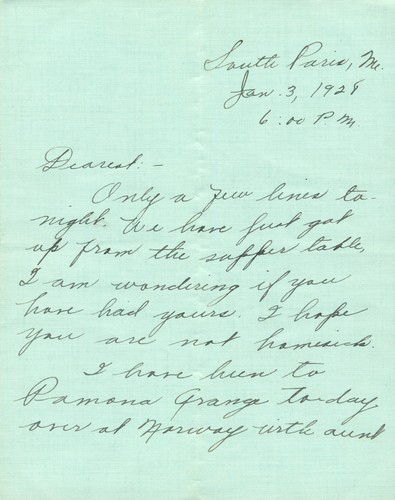 South Paris, Me.
Jan. 3, 1928
6:00 P.M.
Dearest:-
Only a few lines to-
night. We have just got
up from the supper table,
I am wondering if you
have had yours. I hope
you are not homesick.
I have been to
Pomona Grange to-day
over at Norway with aunt